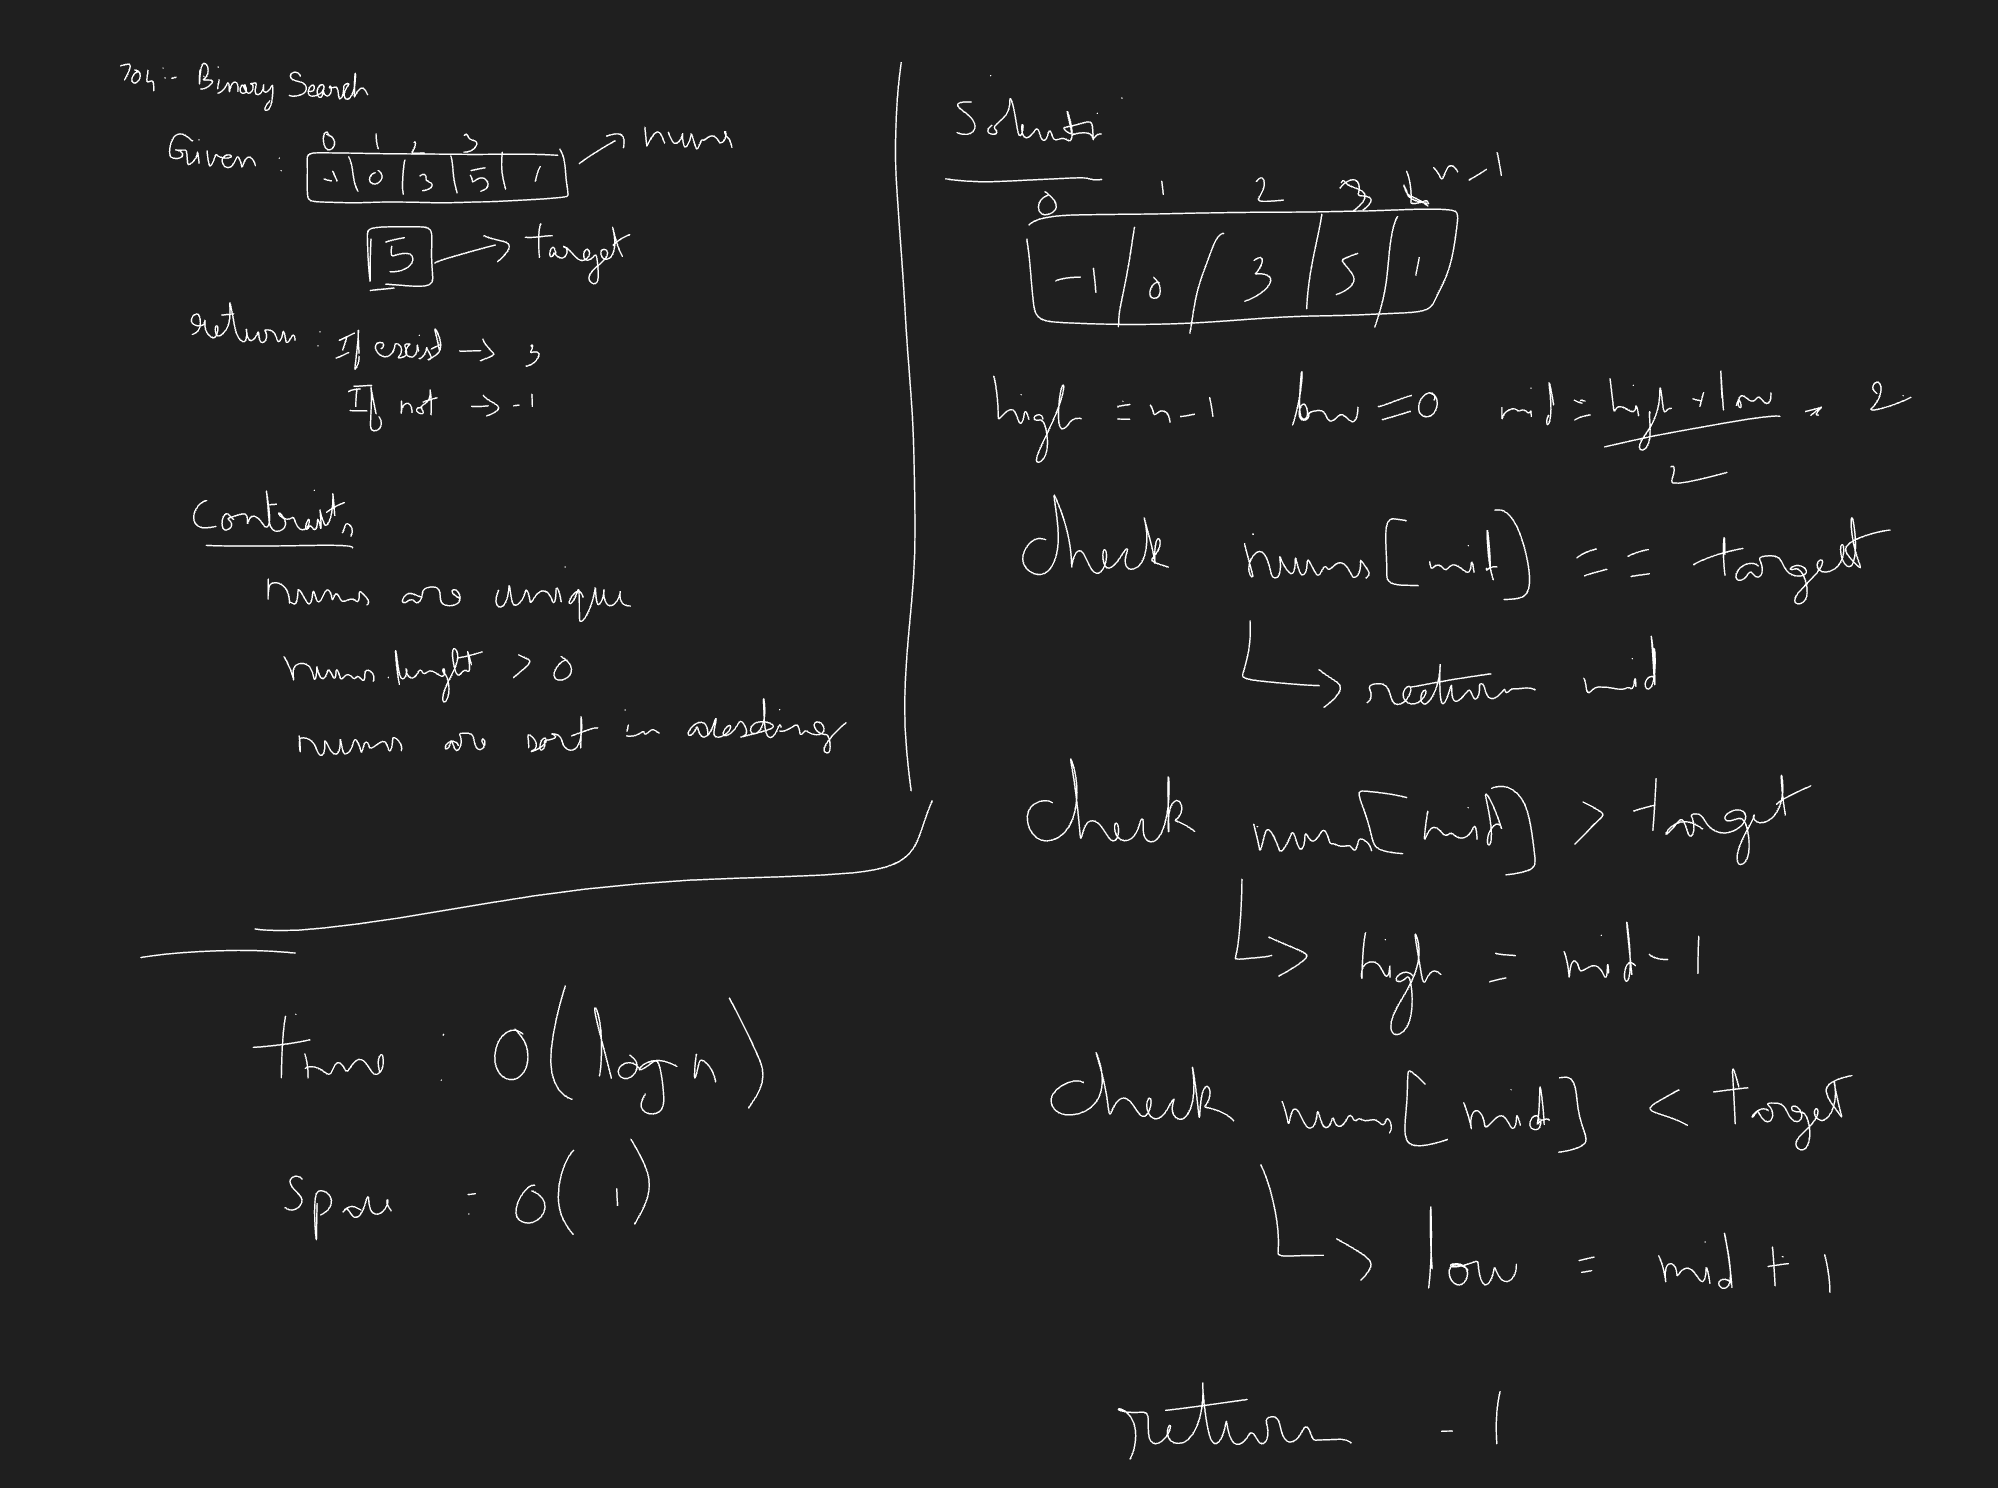 704:- Binary Search
Given : 0 1 2 3
-1 0 3 5 1 → nums
5 → target
return : If exist → 3
If not → -1
Contraits
nums are unique
nums.lenght > 0
nums are sort in
time : O(log n)
space : O(1)
Soluti
0 1 2 3 n-1
-1 0 3 5 1
high = n-1 low = 0 mid = high + low / 2 = 2
check nums[mid] == target
↳ return mid
check nums[mid] > target
↳ high = mid - 1
check nums[mid] < target
↳ low = mid + 1
return -1